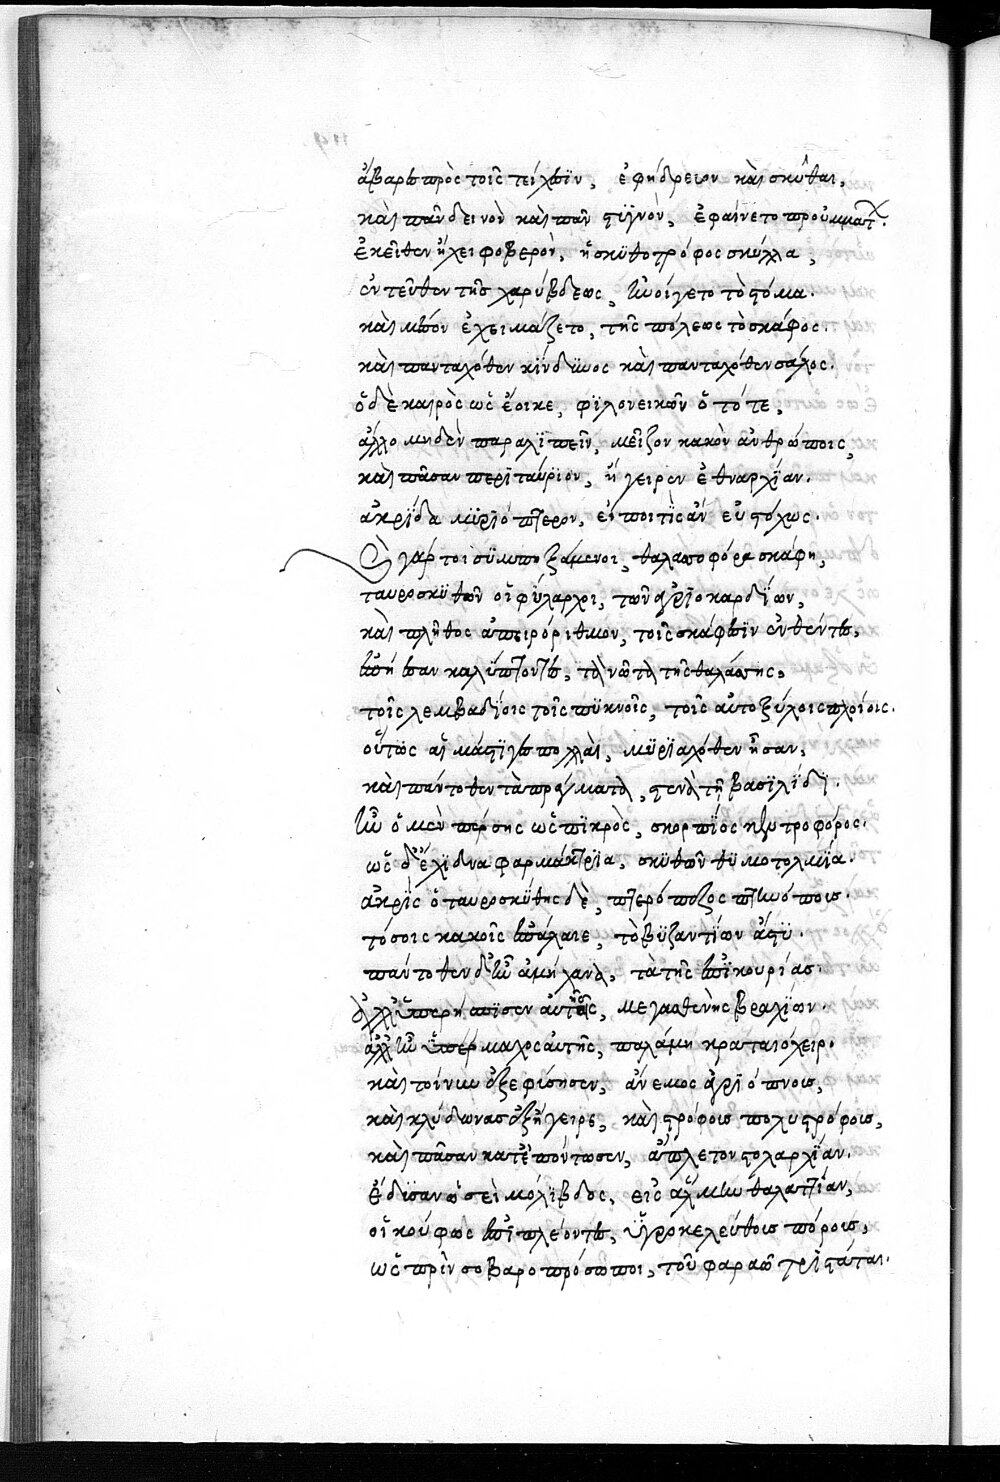 ἄβαρις πρὸς τοῖς τείχεσιν, ἐφήδρευον καὶ σκύθαι,
καὶ πᾶν δεινὸν καὶ πᾶν στυγνὸν, ἐφαίνετο πρὸ ὀμμάτων.
ἐκεῖθεν ἤχει φοβερὸν, ἡ σκυθοτρόφος σκύλλα,
ἐντεῦθεν τῆς χαρύβδεως, ἠνοίγετο τὸ στόμα.
καὶ μέσον ἐχειμάζετο, τῆς πόλεως τὸ σκάφος.
καὶ πανταχόθεν κίνδυνος καὶ πανταχόθεν σάλος.
ὁ δὲ καιρὸς ὡς ἔοικε, φιλονεικῶν ὁ τότε,
ἄλλο μηδὲν παραλιπεῖν, μεῖζον κακὸν ἀνθρώποις,
καὶ πᾶσαν περιταύριον, ἤγειρεν ἐθναρχίαν.
ἀκρίδα μυριόπτερον, εἴποι τις ἂν εὐστόχως.
Οἱ γάρ τοι συμπηξάμενοι, θαλαττοφόρα σκάφη,
ταυροσκυθῶν οἱ φύλαρχοι, τῶν ἀγριοκαρδίων,
καὶ πλῆθος ἀπειρόριθμον, τοῖς σκάφεσιν ἐνθέντες,
ἐπήεσαν καλύπτοντες, τὰ νῶτα τῆς θαλάττης,
τοῖς λεμβαδίοις τοῖς πυκνοῖς, τοῖς αὐτοξύλοις πλοίοις.
οὕτως αἱ μάστιγες πολλαὶ, μυριαχόθεν ἦσαν,
καὶ πάντοθεν τὰ πράγματα, στενὰ τῇ βασιλίδι.
ἦν ὁ μὲν πέρσης ὡς πικρὸς, σκορπίος κεντροφόρος.
ὡς δ' ἔχιδνα φαρμάκτρια, σκυθῶν θυμοτολμία.
ἀκρὶς ὁ ταυροσκύθης δὲ, πτερόπεζος πτηνόπους.
τόσοις κακοῖς ἐπάλαιε, τὸ βυζαντίων ἄστυ.
πάντοθεν δ' ἦν ἀμήχανα, τὰ τῆς ἐπικουρίας.
ἀλλ' ὑπερήσπισεν αὐτῆς, μεγασθενὴς βραχίων.
ἀλλ' ἦν ὑπέρμαχος αὐτῆς, παλάμη κραταιόχειρ.
καὶ τοίνυν ἐξεφύσησεν, ἄνεμος ἀγριόπνους,
καὶ κλύδωνας ἐξήγειρε, καὶ στρόφους πολυστρόφους,
καὶ πᾶσαν κατεπόντωσεν, ἄπλετον στολαρχίαν.
ἔδυσαν ὡσεὶ μόλιβδος, εἰς ἅλμην θαλαττίαν,
οἱ κούφως ἐπιπλέοντες, ὑγροκελεύθοις πόροις,
ὡς πρὶν σοβαροπρόσωποι, τοῦ φαραὼ τριστάται.